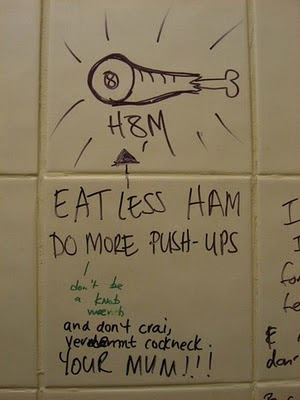 8
H8M
EAT LESS HAM
DO MORE PUSH-UPS
don't be
a knob
and don't crai,
cockneck.
YOUR MUM!!!
I
I
for
te
&
don'